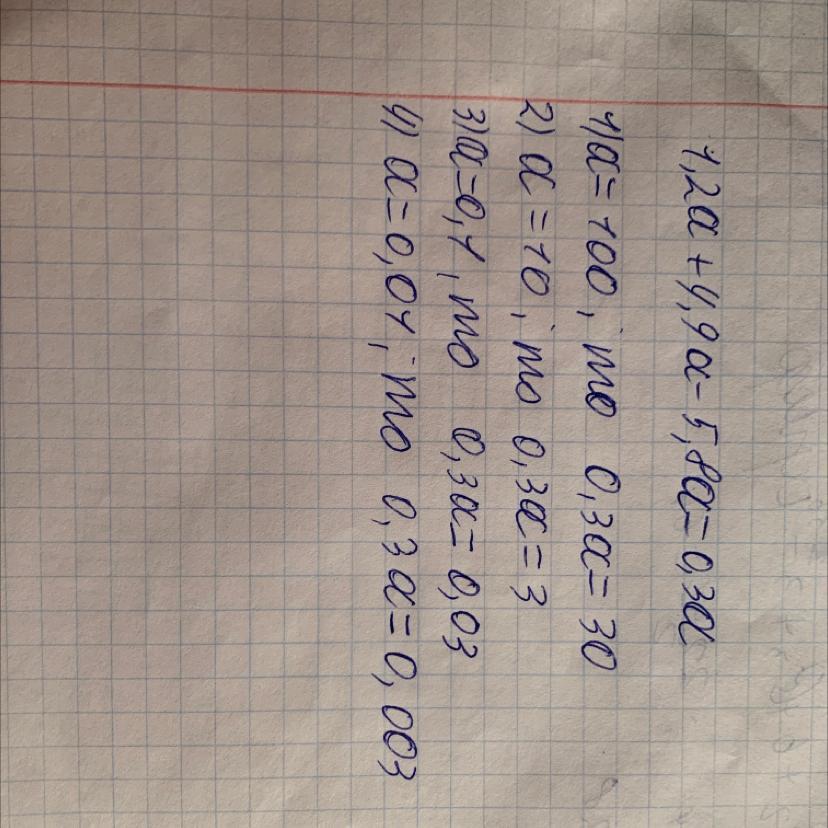 1,2a + 4,9a - 5,8a = 0,3a
1) a = 100, то 0,3a = 30
2) a = 10, то 0,3a = 3
3) a = 0,1, то 0,3a = 0,03
4) a = 0,01, то 0,3a = 0,003